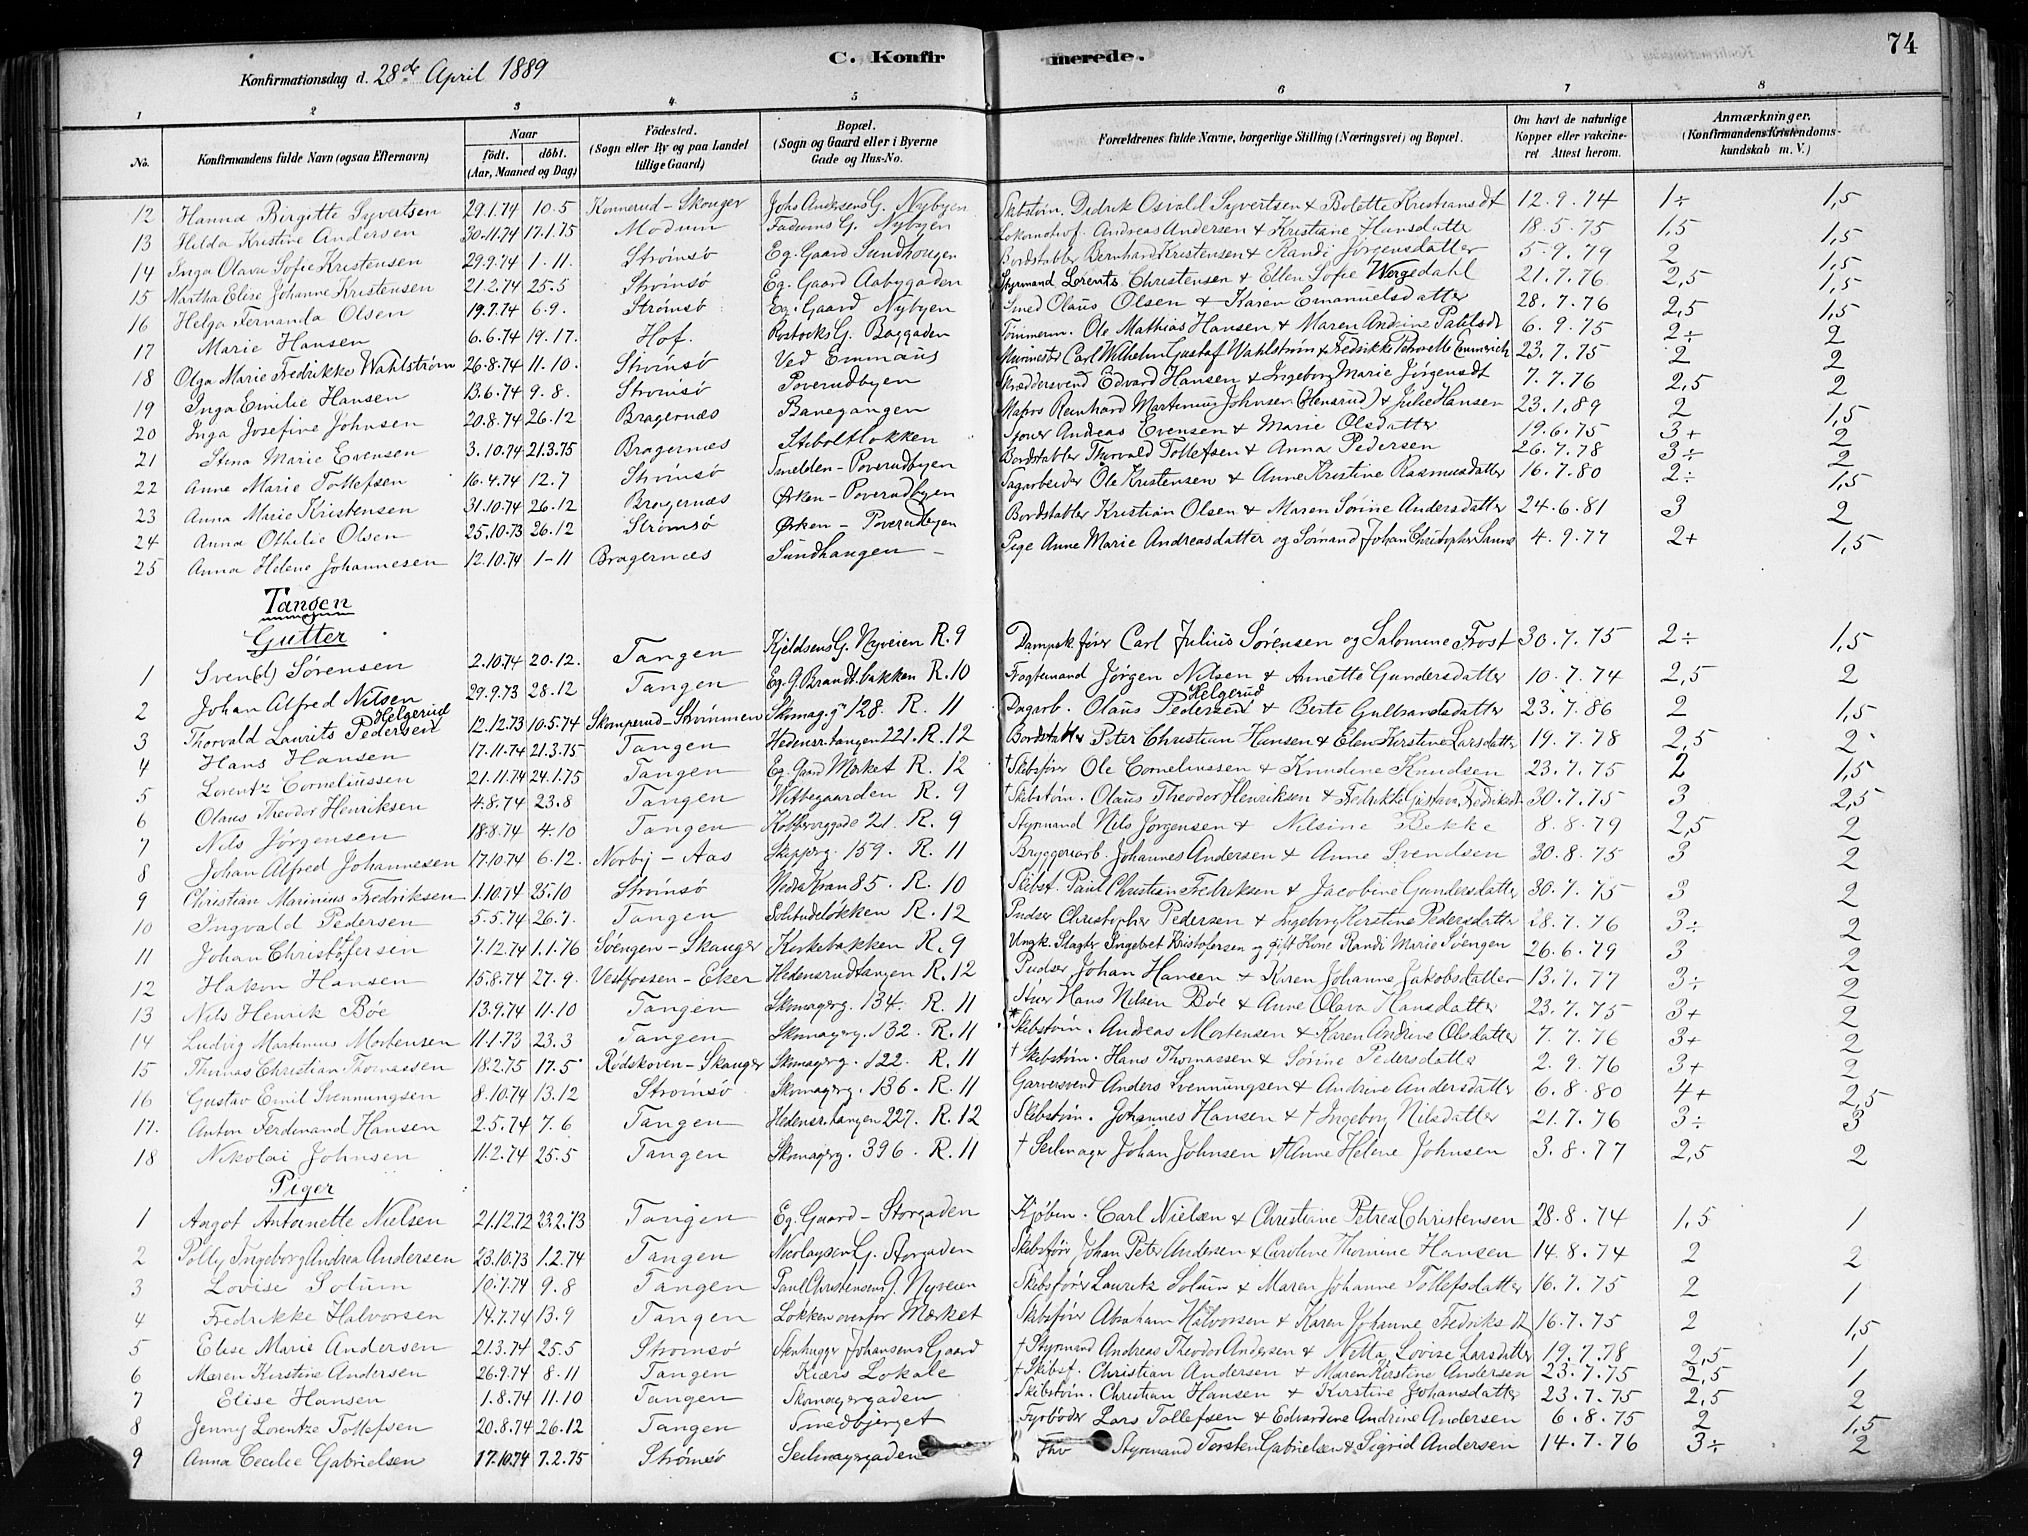 74
C. Konfirmerede.
Konfirmationsdag d. 28de April 1889
1 2 3 4 5 6 7 8
No. Konfirmandens fulde Navn (ogsaa Efternavn) Naar født. døbt. (Aar, Maaned og Dag) Fødested. (Sogn eller By og paa Landet tillige Gaard) Bopæl. (Sogn og Gaard eller i Byerne Gade og Hus-No. Forældrenes fulde Navne, borgerlige Stilling (Næringsvei) og Bopæl. Om havt de naturlige Kopper eller vakcineret Attest herom. Anmærkninger. (Konfirmandens Kristendomskundskab m. V.)
12 Hanna Birgitte Syvertsen 29.1.74 10.5 Konnerud-Skouger Johs Andersens G. Nybyen Skibstøm. Didrik Osvald Syvertsen & Bolette Kristiansdt 12.9.74 1÷ 1,5
13 Helda Kristine Andersen 30.11.74 17.1.75 Modum Fadums G. Nybyen Lokomotivf. Andreas Andersen & Kristiane Hansdatter 18.5.75 1,5 1,5
14 Inga Olava Sofie Kristensen 29.9.74 1-11. Strømsø Eg. Gaard Sundhougen Bordstabler Bernhard Kristensen & Randi Jørgensdatter 5.9.79 2 1,5
15 Martha Elise Johanne Kristensen 21.2.74 25.5 Strømsø Eg. Gaard Aabygaden Styrmand Lorents Christensen & Ellen Sofie Wergedahl 21.7.76 2,5 1,5
16 Helga Fernanda Olsen 19.7.74 6.9. Strømsø Eg. Gaard Nybyen Smed Olaus Olsen & Karen Emanuelsdatter 28.7.76 2,5 1,5
17 Marie Hansen 6.6.74 19.17. Hof. Rostocks G. Baggaden Tømmerm. Ole Mathias Hansen & Maren Andrine Paulsdt 6.9.75 2÷ 2
18 Olga Marie Fredrikke Wahlstrøm 26.8.74 11.10. Strømsø Ved Emmaus Murmester Carl Wilhelm Gustaf Wahlstrøm & Fredrikke Petronelle Emmerich 23.7.75 2 2
19 Inga Emilie Hansen 13.6.74 9.8. Strømsø Poverudbyen Skræddersvend Edvard Hansen & Ingeborg Marie Jørgensdt 7.7.76 2,5 2
20 Inga Josefine Johnsen 20.8.74 26.12 Bragernæs Banegangen Matros Reinhard Martinius Johnsen (Hensrud) & Julie Hansen 23.1.89 2 1,5
21 Stina Marie Evensen 3.10.74 21.3.75 Bragernæs Stiboltløkken Sjouer Andreas Evensen & Marie Olsdatter 19.6.75 3+ 2
22 Anne Marie Tollefsen 16.4.74 12.7 Strømsø Tmelden-Poverudbyen Bordstabler Thorvald Tollefsen & Anna Pedersen 26.7.78 3÷ 2
23 Anna Marie Kristensen 31.10.74 26.12 Bragernæs Ørken-Poverudbyen Sagarbeider Ole Kristensen & Anne Kristine Rasmusdatter 16.7.80 2÷ 1,5
24 Anna Othilie Olsen 25.10.73 26.12 Strømsø Ørken-Poverudbyen Bordstabler Kristian Olsen & Maren Sørine Andersdatter 24.6.81 3 2
25 Anna Helene Johannesen 12.10.74 1-11 Bragernæs Sundhaugen - Pige Anne Marie Andreasdatter og Sømand Johan Christopher 4.9.77 2+ 1,5
Tangen
Gutter
1 Sven(d) Sørensen 2.10.74 20.12. Tangen Kjeldsens G. Nyveien R.9 Dampsk.fører Carl Julius Sørensen og Salomine Frost 30.7.75 2÷ 1,5
2 Johan Alfred Nilsen 29.9.73 28.12 Tangen Eg. G. Brandtbakken R.10 Fragtemand Jørgen Nilsen & Annette Gundersdatter 10.7.74 2,5 2
3 Thorvald Laurits Pedersen Helgerud 12.12.73 10.5.74 Skomperud-Strømmen Skomag.g 128. R. 11 Dagarb. Olaus Pedersen Helgerud & Berte Gulbrandsdatter 23.7.86 2 1,5
4 Hans Hansen 17.11.74 21.3.75 Tangen Hedensr.tangen 221. R. 12 Bordstabler Peter Christian Hansen & Elen Kirstine Larsdatter 19.7.78 2,5 2
5 Lorentz Corneliussen 21.11.74 24.1.75 Tangen Eg. Gaard Mærket R. 12 † Skibsfører Ole Corneliussen & Knudine Knudsen 23.7.75 2 1,5
6 Olaus Theodor Henriksen 4.8.74 23.8 Tangen Wittegaarden R. 9 † Skibstøm. Olaus Theodor Henriksen & Fredrikke Gustava Fredriksdt 30.7.75 3 2,5
7 Nils Jørgensen 18.8.74 4.10 Tangen Kobbervggade 21. R. 9 Styrmand Nils Jørgensen & Nilsine Bekke 8.8.79 2,5 2
8 Johan Alfred Johannesen 17.10.74 6.12. Norby-Aas Skipperg. 159. R. 11 Bryggeriarb. Johannes Andersen & Anne Svendsen 30.8.75 3 2
9 Christian Marinius Fredriksen 1.10.74 25.10 Strømsø Nedre Kran 85. R. 10 Skibsf. Paul Christian Fredriksen & Jacobine Gundersdatter 30.7.75 3 2
10 Ingvald Pedersen 5.5.74 26.7. Tangen Solitudeløkken R. 12 Pudser Christopher Pedersen & Ingeborg Kirstine Pedersdatter 28.7.76 3÷ 2
11 Johan Christofersen 7.12.74 1.1.76 Svengen-Skauger Kirkebakken R. 9 Ungk. Slagter Ingebret Kristofersen og gift Kone Randi Marie Svengen 26.6.79 3 2
12 Hakon Hansen 15.8.74 27.9. Vestfossen-Eker Hedensrudtangen R. 12 Pudser Johan Hansen & Karen Johanne Jakobsdatter 13.7.77 3÷ 2
13 Nils Henrik Bøe 13.9.74 11.10 Tangen Skomagerg. 134. R. 11 Stuer Hans Nilsen Bøe & Anne Olava Hansdatter 23.7.75 3+ 2
14 Ludvig Martinius Mortensen 11.1.73 23.3 Tangen Skomagerg. 132. R. 11 Skibstøm. Andreas Mortensen & Karen Andrine Olsdatter 7.7.76 3+ 2
15 Thomas Christian Thomassen 18.2.75 17.5 Rødskoven-Skauger Skomagerg. 122. R. 11 † Skibstøm. Hans Thomassen & Sørine Pedersdatter 2.9.76 3+ 2
16 Gustav Emil Svennungsen 8.10.74 13.12 Strømsø Skomagerg. 136. R. 11 Garversvend Anders Svennungsen & Andrine Andersdatter 6.8.80 4+ 2,5
17. Anton Ferdinand Hansen 2.5.74 7.6 Tangen Hedensr.tangen 227. R. 12 Skibstøm. Johannes Hansen & † Ingeborg Nilsdatter 21.7.76 3÷ 3
18 Nikolai Johnsen 11.2.74 25.5 Tangen Skomagerg. 396. R. 11 † Seilmager Johan Johnsen & Anne Helene Johnsen 3.8.77 2,5 2
Piger
1 Aagot Antoinette Nielsen 21.12.72 23.2.73 Tangen Eg. Gaard-Storgaden Kjøbm. Carl Nielsen & Christiane Petrea Christensen 28.8.74 1,5 1
2 Polly Ingeborg Andrea Andersen 23.10.73 1.2.74 Tangen Nicolaysens G. Storgaden Skibsfører Johan Peter Andersen & Caroline Thomine Hansen 14.8.74 2 2
3 Lovise Solum 10.7.74 9.8 Tangen Paul Christensens G. Nyveien Skibsfører Lauritz Solum & Maren Johanne Tollefsdatter 16.7.75 2 1
4 Fredrikke Halvorsen 14.7.74 13.9 Tangen Løkken ovenfor Mærket Skibsfører Abraham Halvorsen & Karen Johanne Fredriksdt 16.7.75 2 1,5
5 Elise Marie Andersen 21.3.74 25.5 Strømsø Stenhugger Johansens Gaard † Styrmand Andreas Theodor Andersen & Netta Lovise Larsdatter 19.7.78 2,5 1
6 Maren Kirstine Andersen 26.9.74 8.11 Tangen Kiærs Lokale † Skibsf. Christian Andersen & Maren Kirstine Andersen 23.7.75 2,5 1
7 Elise Hansen 1.8.74 11.10 Tangen Skomagergaden Skibstøm. Christian Hansen & Kirstine Johansdatter 23.7.75 2,5 2
8 Jenny Lorentze Tollefsen 20.8.74 26.12 Tangen Smedbjerget Fyrbøder Lars Tollefsen & Edvardine Andrine Andersen 6.8.75 2 1,5
9 Anna Cecilie Gabrielsen 17.10.74 7.2.75 Strømsø Seilmagergaden Fhv Styrmand Torsten Gabrielsen & Sigrid Andersen 14.7.76 3÷ 2